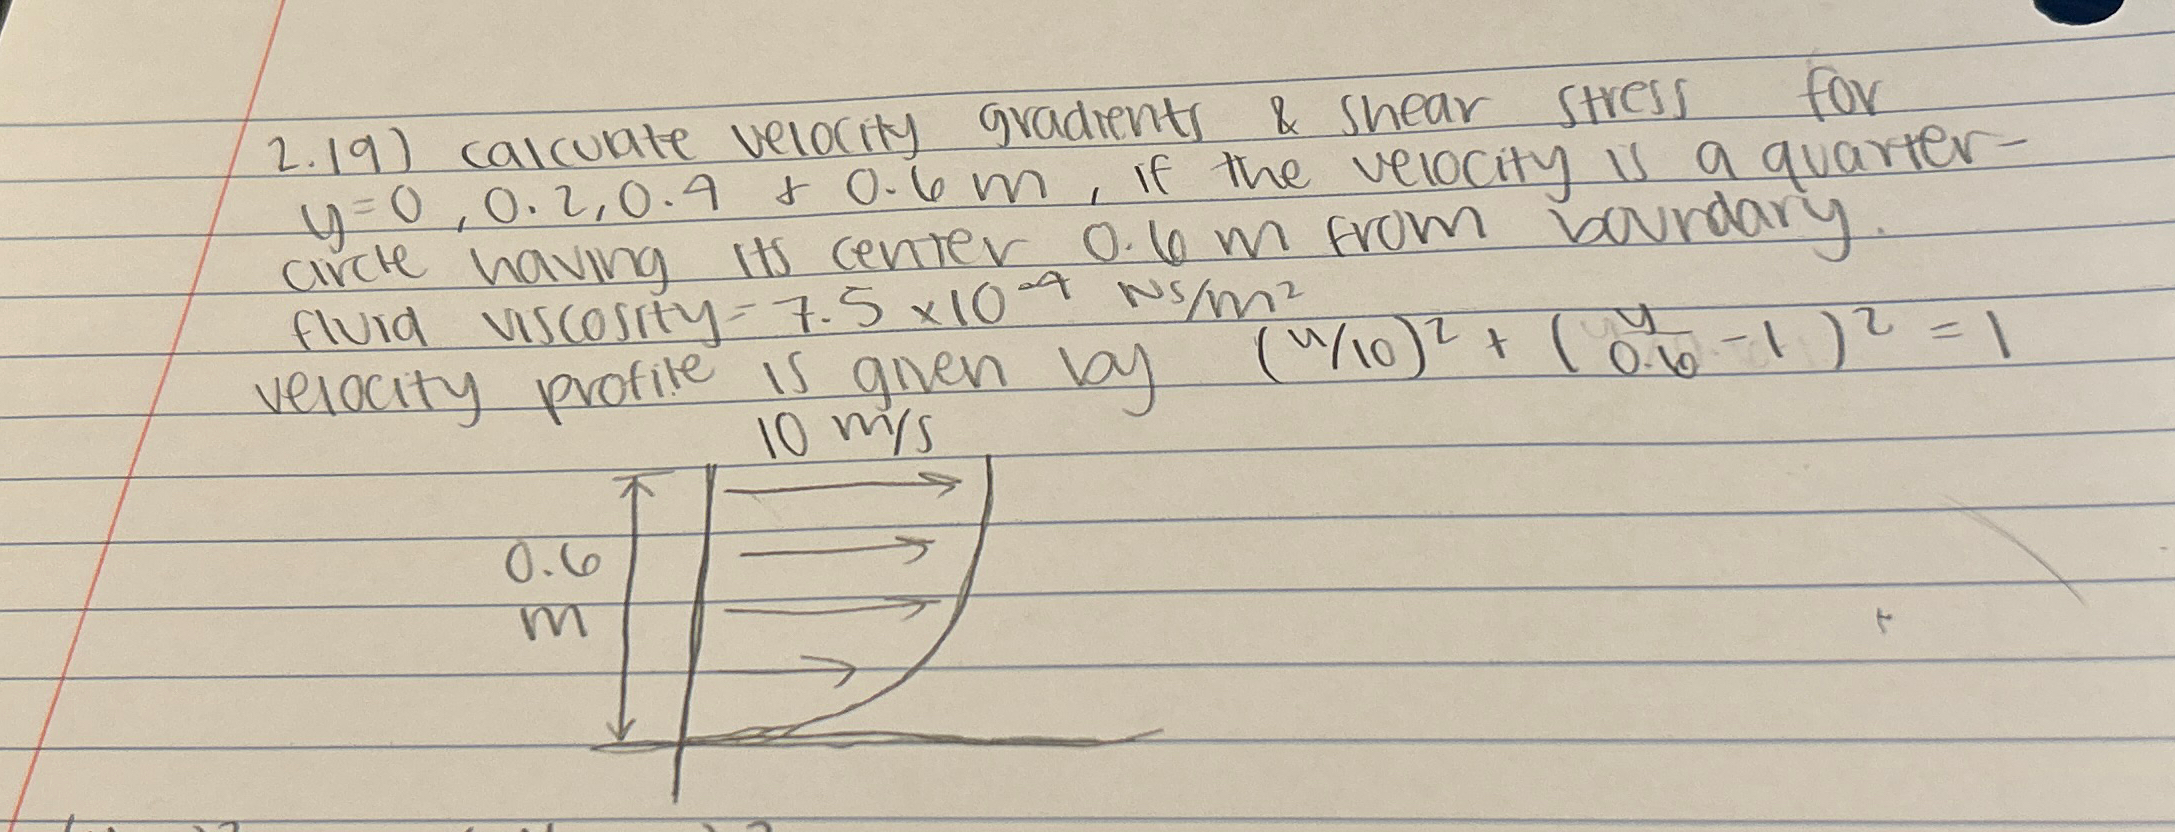 2.19) calculate velocity gradients & shear stress for
y=0, 0.2, 0.4 & 0.6 m, if the velocity is a quarter-
circle having its center 0.6 m from boundary.
fluid viscosity = 7.5 x10⁻⁴ Ns/m²
velocity profile is given by (u/10)² + (y/0.6 - 1)² = 1
10 m/s
0.6
m